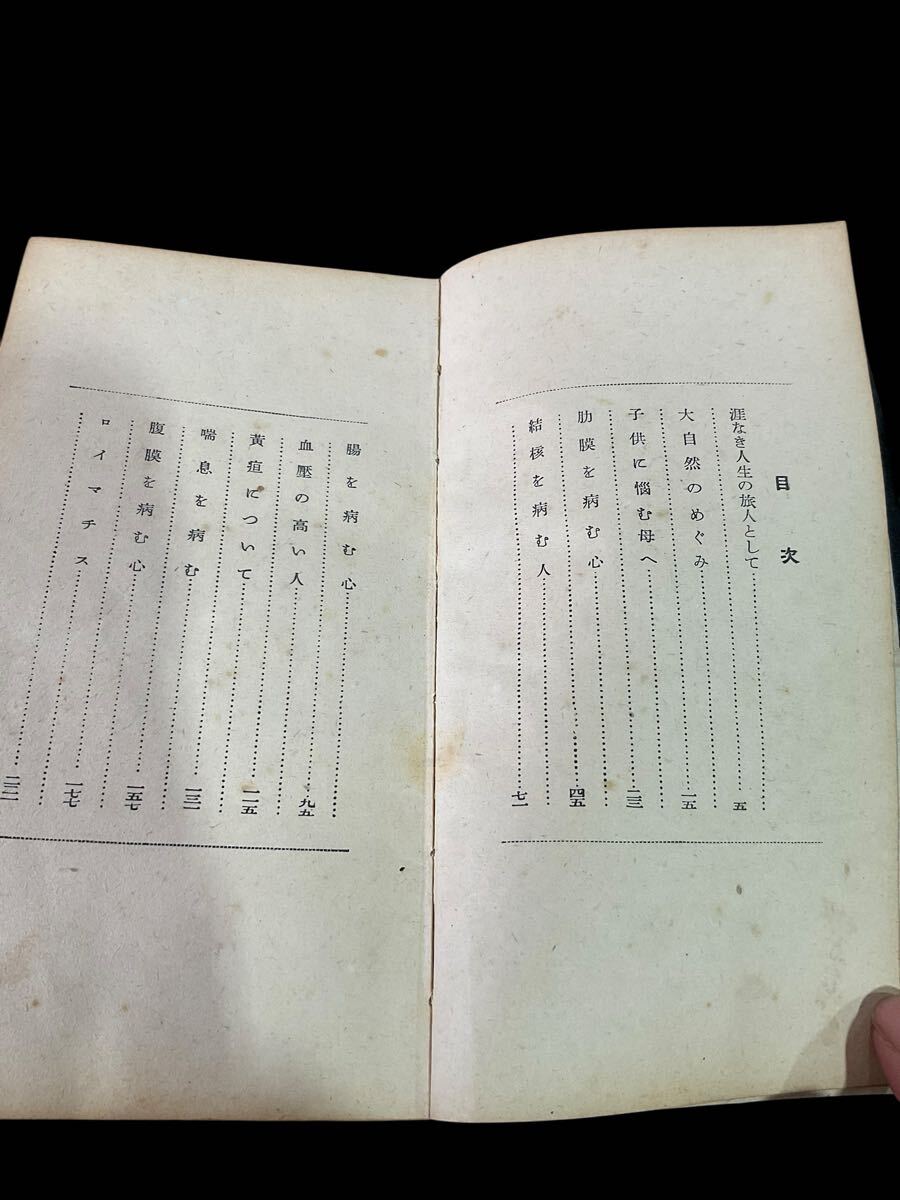 目次
涯なき人生の旅人として……五
大自然のめぐみ……一五
子供に惱む母へ……二三
肋膜を病む心……四五
結核を病む人……七一
腸を病む心……九五
血壓の高い人……一一五
黃疸について……一三一
喘息を病む……一五七
腹膜を病む心……一七七
ロイマチス……